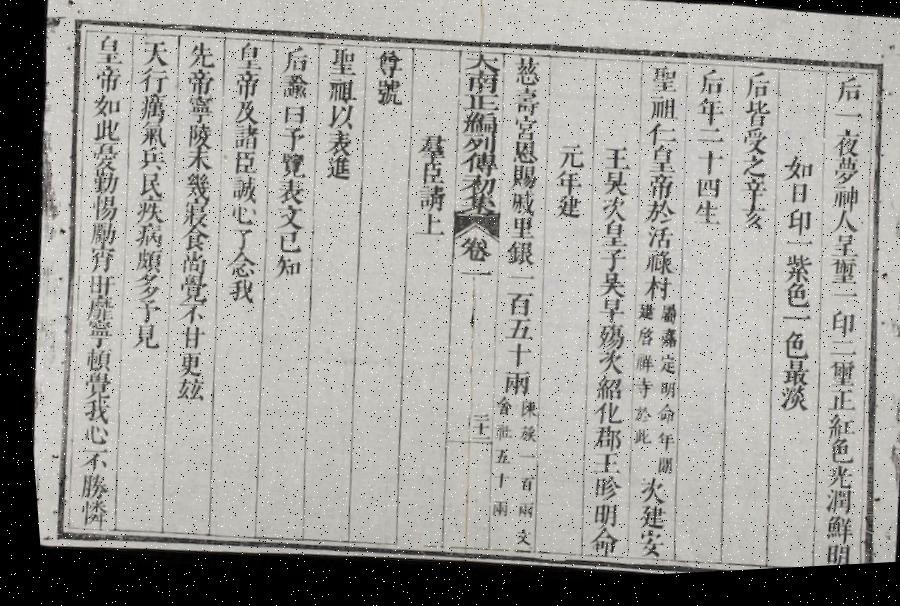 后一夜夢神人呈璽一印二璽正紅色光潤鮮明
如日印一紫色一色最淡
后皆受之辛亥
后年二十四生
聖祖仁皇帝於活祿村屬嘉定明命年間建啓祥寺於此次建安
王昊次皇子吳早殤次紹化郡王昣明命
元年建
慈壽宮恩賜戚里銀一百五十兩陳族一百兩文會社五十兩
大南正編列傳初集 卷一 三十一
羣臣請上
尊號
聖祖以表進
后諭曰予覽表文已知
皇帝及諸臣誠心了念我
先帝寧陵未幾寢食尚覺不甘更玆
天行癘氣兵民疾病頗多予見
皇帝如此憂勤惕勵宵旰靡寧頓覺我心不勝憐